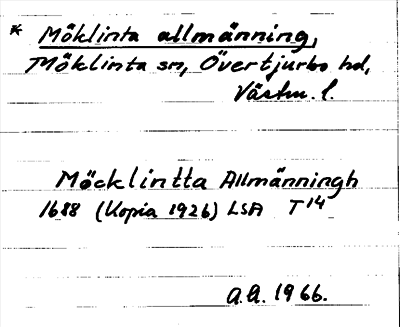 * Möklinta allmänning,
Möklinta sn, Övertjurbo hd,
Västm. l.
Möcklintta Allmänningh
1688 (Kopia 1926) LSA T 14
A.A. 1966.